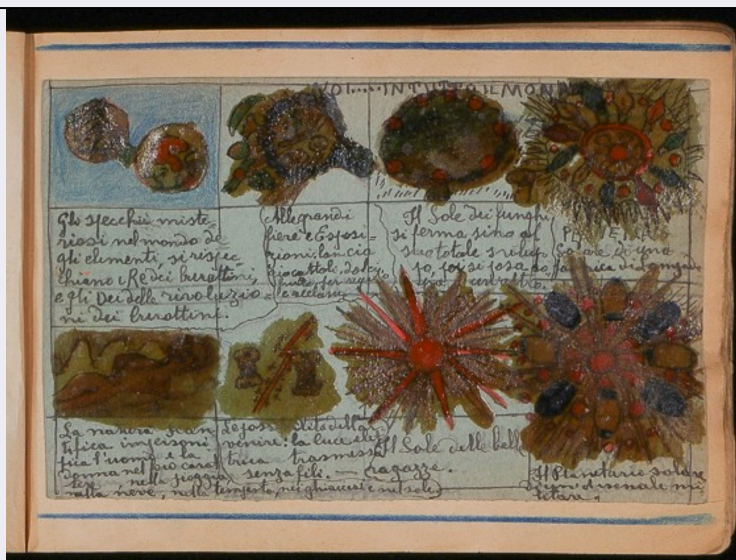 VOI.....IN TUTTO IL MONDO
Gli specchi miste-
riosi nel mondo de-
gli elimenti, si rispec
chiano i Re dei burattini,
e gli Dei delle rivoluzio-
ni dei burattini.
Alle grandi
fiere e Esposi-
zioni, lancio
giocattoli, dolci
e reclame
Il Sole dei funghi
si ferma sino al
suo totale svilup-
po, poi si posa
PIANETA
Solare di una
fabrica di
La natura
tifica
fica l'uomo e la
donna nel più
nella pioggia
nella neve, nella tempesta, nei ghiacci e nel sole
Le possibilità dell'av
venire: la luce elet
trica trasmessa
senza fili. —
Il Sole delle belle
ragazze.
Il Planetario solare
di un arsenale mi
litare,